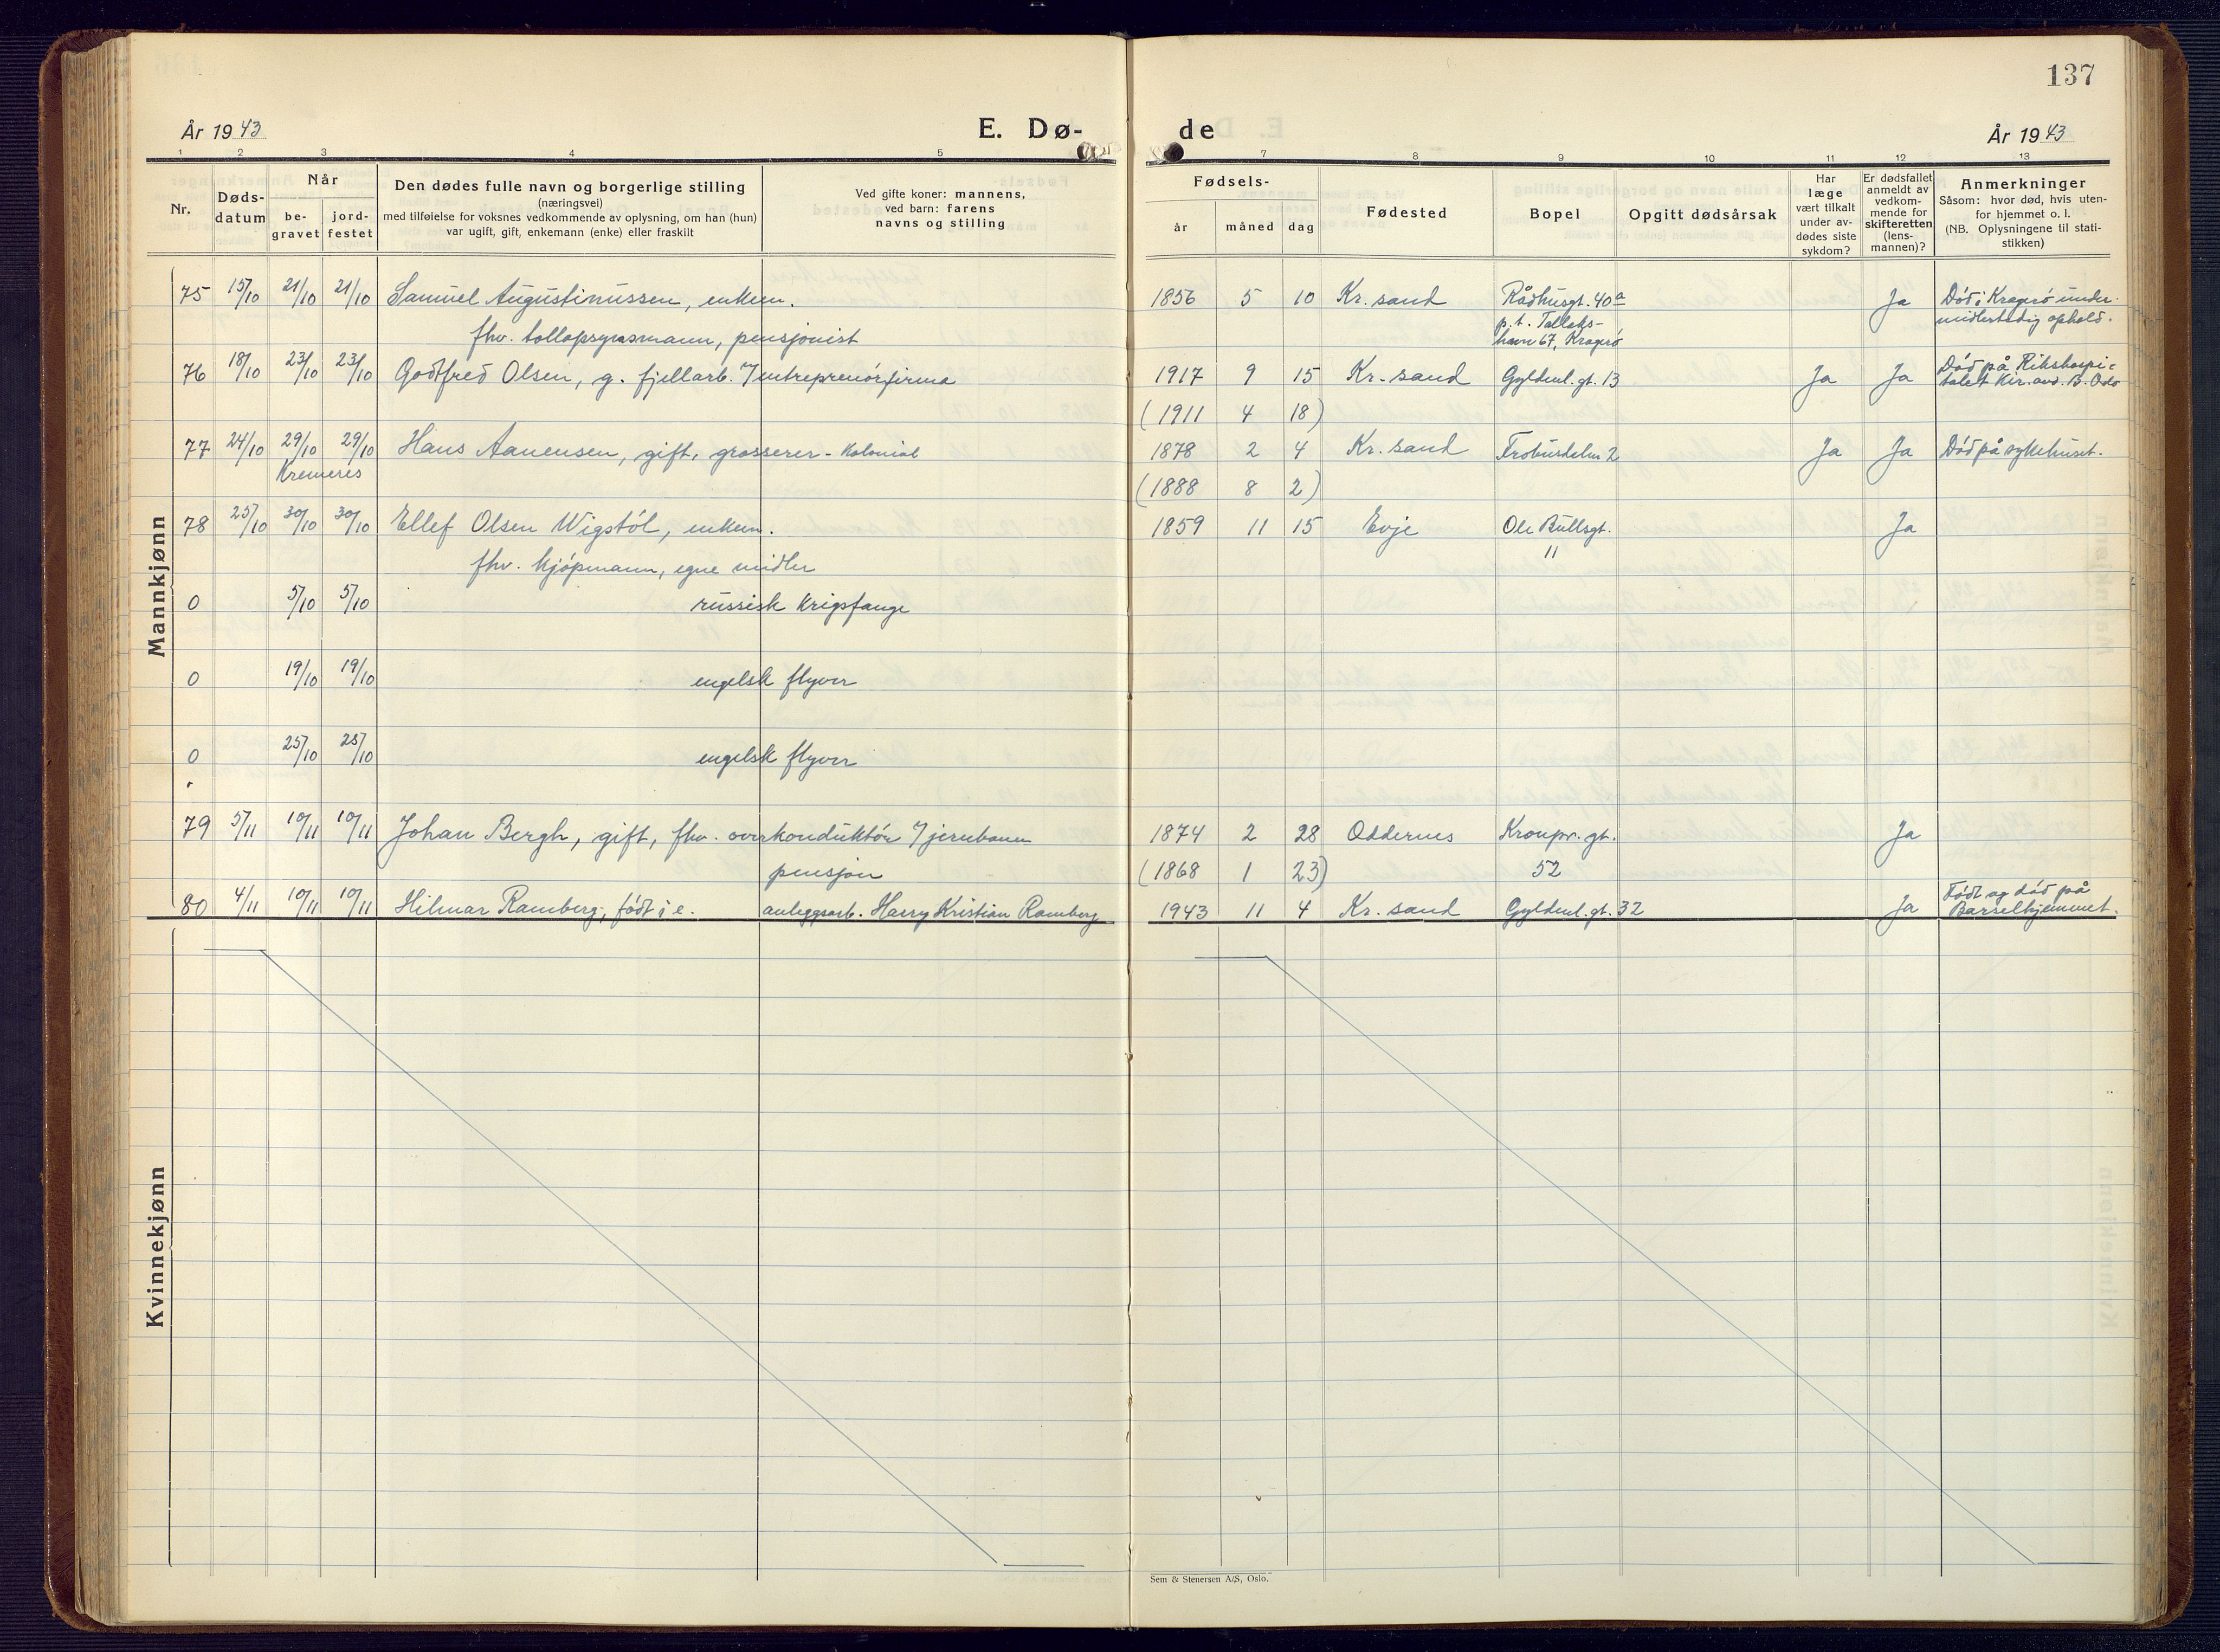 137
År 1943
E. Dø-
de
År 1943
1 2 3 4 5 7 8 9 10 11 12 13
Nr.
Døds-
datum
Når
be-
gravet
jord-
festet
Den dødes fulle navn og borgerlige stilling
(næringsvei)
med tilføielse for voksnes vedkommende av oplysning, om han (hun)
var ugift, gift, enkemann (enke) eller fraskilt
Ved gifte koner: mannens,
ved barn: farens
navns og stilling
Fødsels-
år måned dag
Fødested
Bopel
Opgitt dødsårsak
Har
læge
vært tilkalt
under av-
dødes siste
sykdom?
Er dødsfallet
anmeldt av
vedkom-
mende for
skifteretten
(lens-
mannen)?
Anmerkninger
Såsom: hvor død, hvis uten-
for hjemmet o. l.
(NB. Oplysningene til stati-
stikken)
Mannkjønn
75 15/10 21/10 21/10 Samuel Augustinussen, enkem. 1856 5 10 Kr. sand Rådhusgt. 40a Ja Død i Kragerø under
fhv. tollopsynsmann, pensjonist p.t. Tallaks- midlertidig ophold.
havn 67, Kragerø
76 18/10 23/10 23/10 Godtfred Olsen, g. fjellarb. v/entreprenørfirma 1917 9 15 Kr. sand Gyldenl. gt. 13 Ja Ja Død på Rikshospi-
talet Kir. avd. B. Oslo
(1911 4 18)
77 24/10 29/10 29/10 Hans Aanensen, gift, grosserer - kolonial 1878 2 4 Kr. sand 2 Ja Ja Død på sykehuset.
Kremeres
(1888 8 2)
78 25/10 30/10 30/10 Ellef Olsen Wigstøl, enkem. 1859 11 15 Evje Ole Bullsgt. Ja
fhv. kjøpmann, egne midler 11
0 5/10 5/10 russisk krigsfange
0 19/10 19/10 engelsk flyver
0 25/10 25/10 engelsk flyver
79 5/11 10/11 10/11 Johan Bergh, gift, fhv. overkonduktør v/jernbanen 1874 2 28 Oddernes Kronpr. gt. Ja
pensjon (1868 1 23) 52
80 4/11 10/11 10/11 Hilmar Ramberg, født i e. anleggsarb. Harry Kristian Ramberg 1943 11 4 Kr. sand Gyldenl. gt. 32 Ja Født og død på
Barselhjemmet.
Kvinnekjønn
Sem & Stenersen A/S, Oslo.